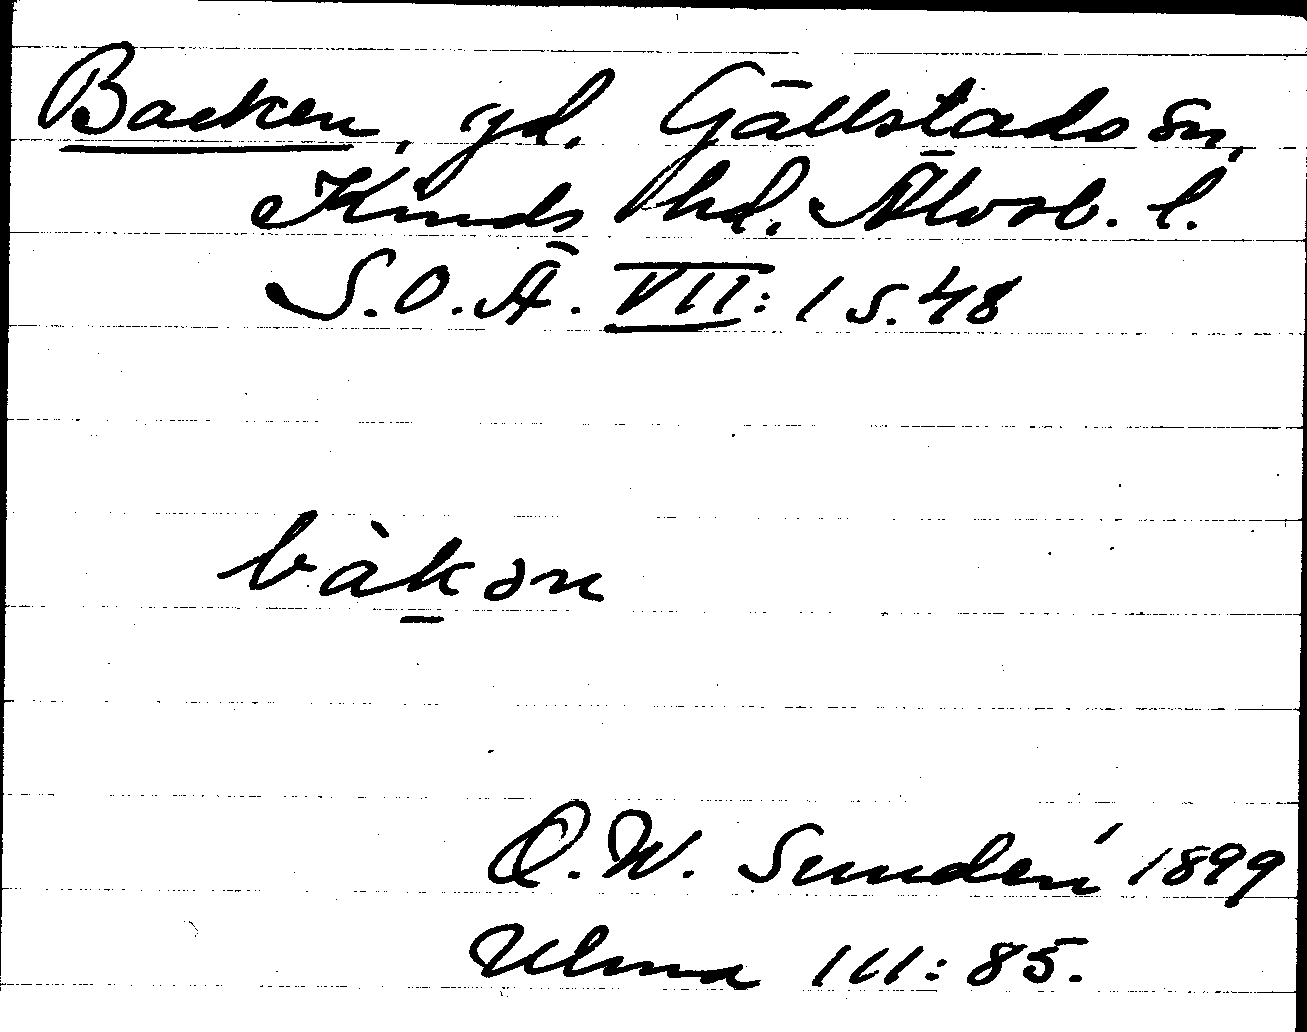 Backen, gd. Gällstads sn,
Kinds hd. Älvsb. l.
S.O.Ä. VII: 1 s. 48
bàkən
D.W. Sundén 1899
Ulma III: 85.